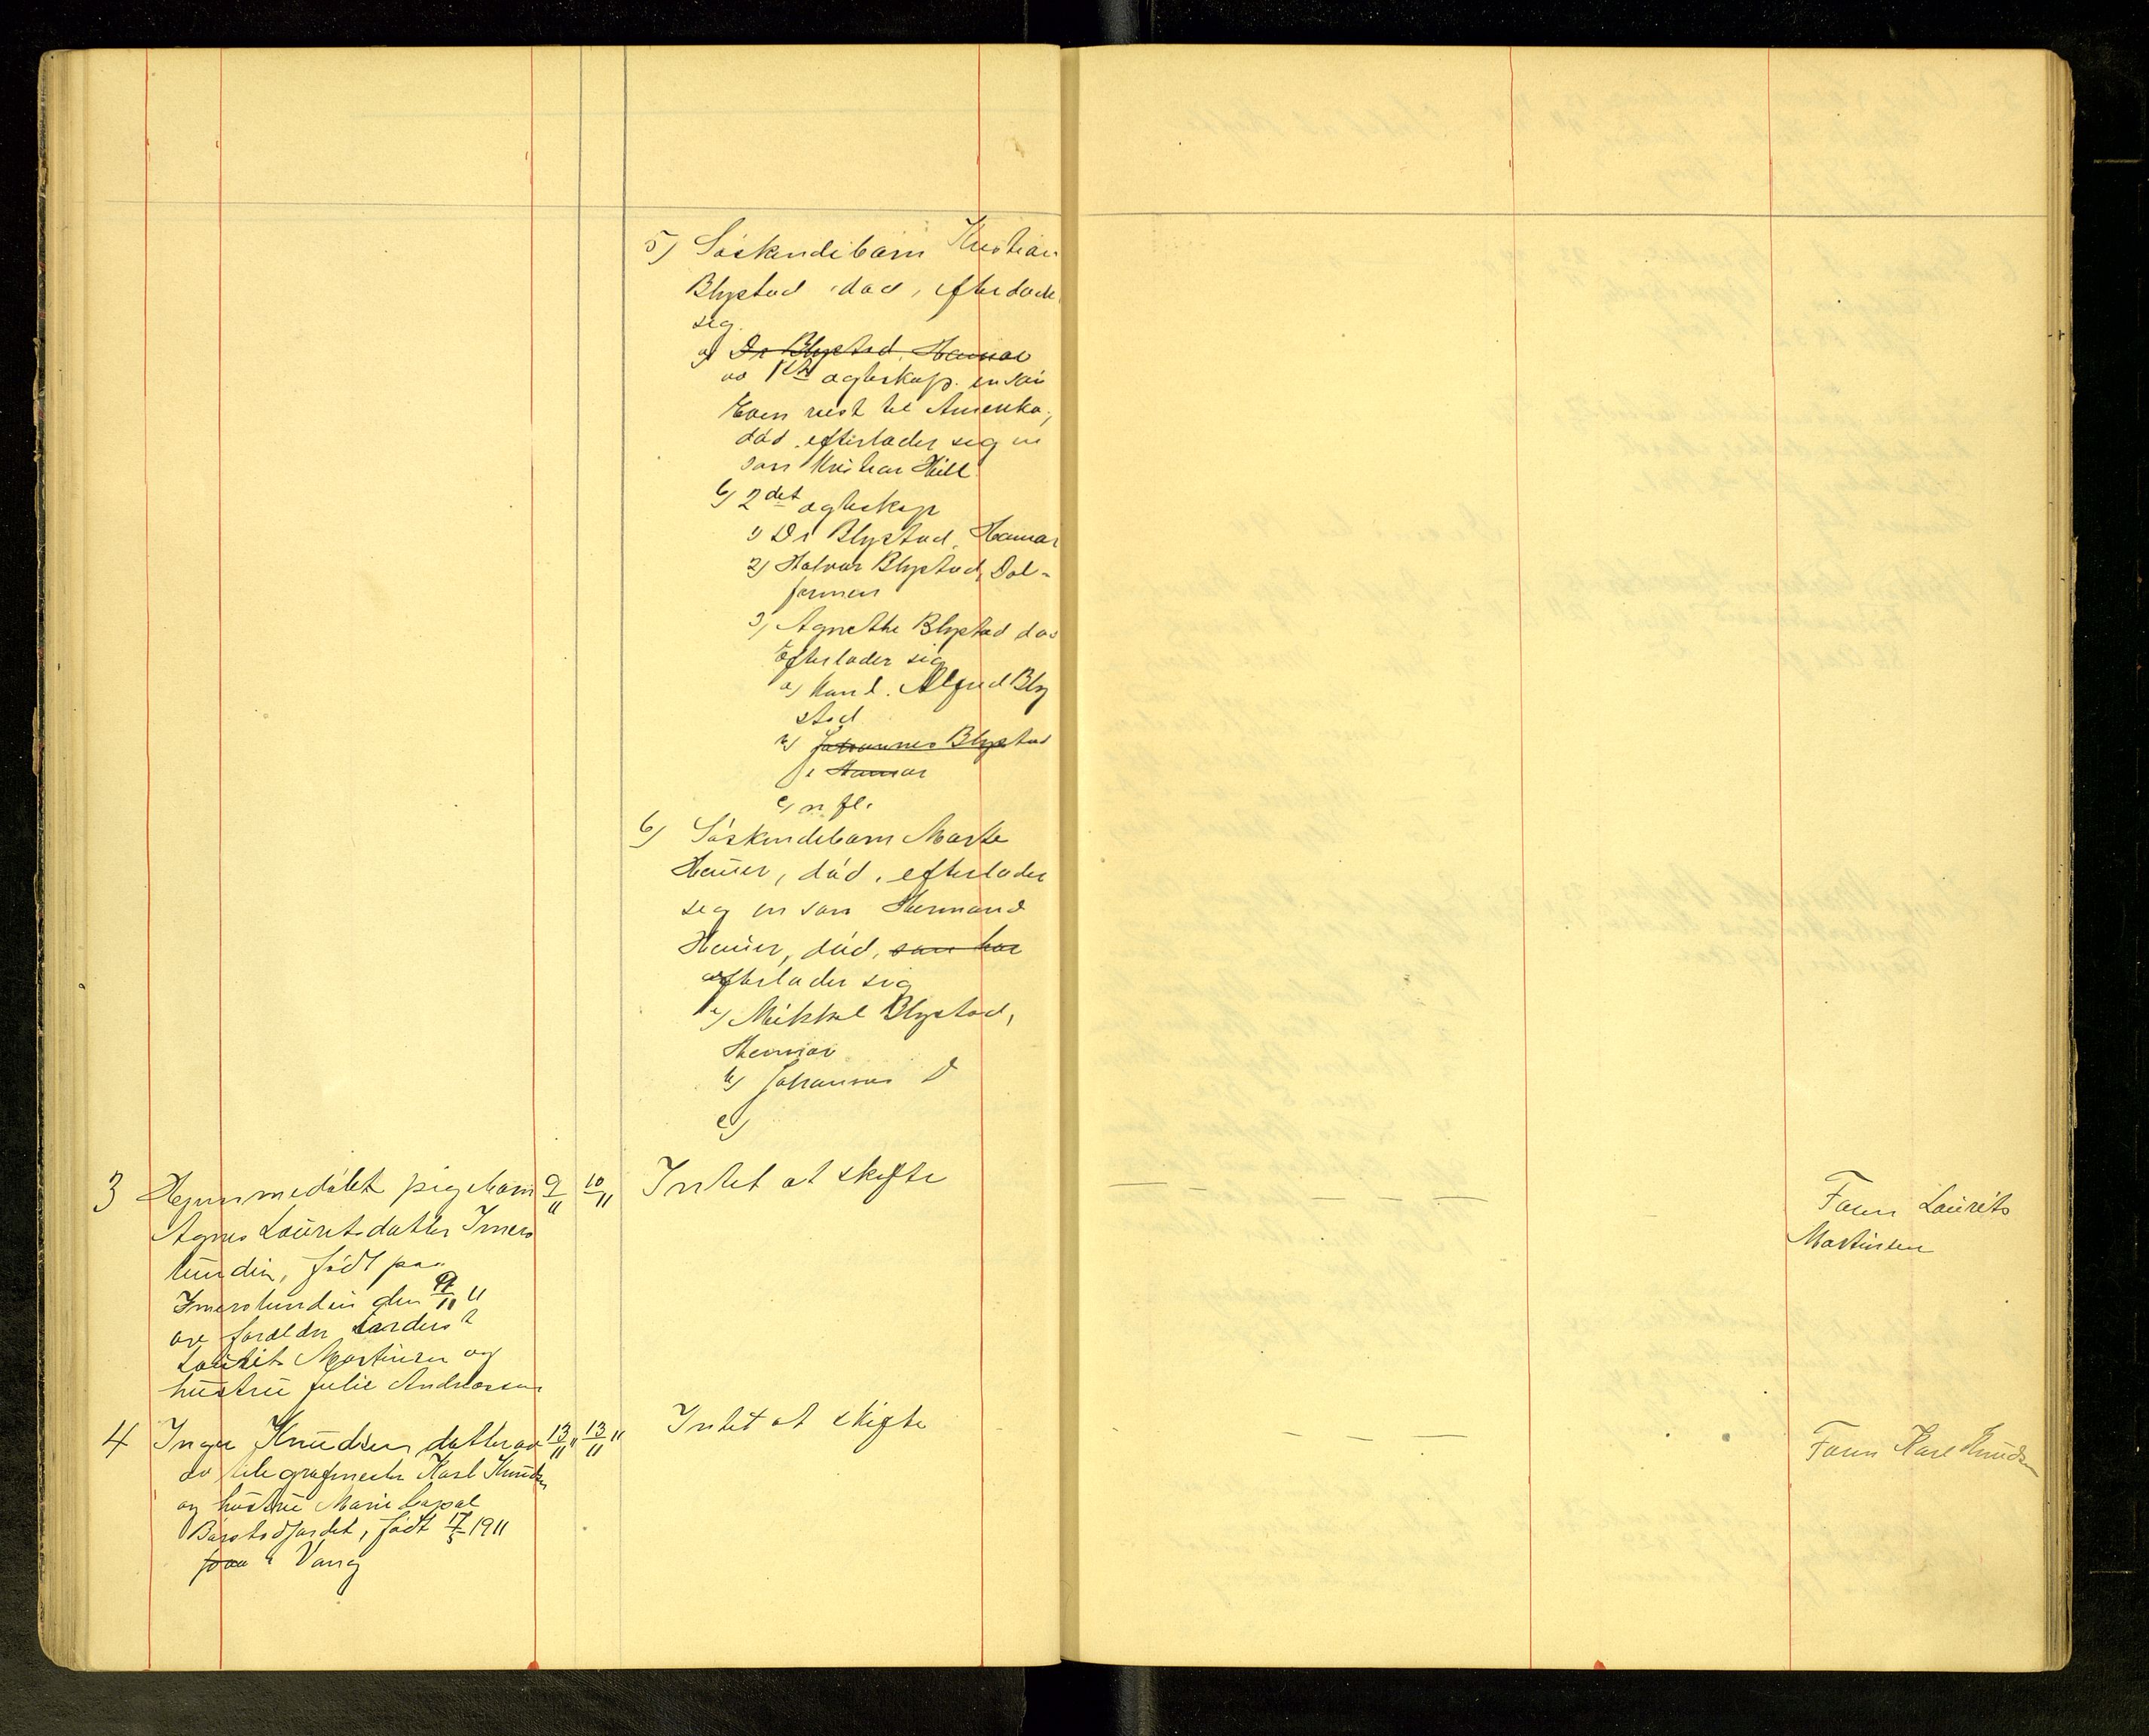 5) Søskendebarn Kristian
Blystad, død, efterlader
sig
a) Dr Blystad, Hamar
av 1ste ægteskap en søn
Even reist til Amerika,
død, efterlader sig en
søn Kristian Hill
b) 2det ægteskap
1) Dr Blystad, Hamar
2) Halvor Blystad, Dal-
farmen
3) Agnethe Blystad død
efterlader sig
a) Kand. Alfred Bly
stad
b) Johannes Blystad
i Hamar
c) m. fl.
6) Søskendebarn Marte
Heuer, død, efterlader
sig en søn Hermand
Heuer, død, som har
efterlader sig
a) Mikkel Blystad,
Hamar
b) Johannes D
c)
3 Hjemmedøbt pigebarn 9/11 10/11 Intet at skifte — — — — Faren Laurits
Agnes Lauritsdatter Imers Martinsen
lunden, født paa
Imerslunden den 9/11 11
av forældre
Laurits Martinsen og
hustru Julie Andreassen
4 Inger Knudsen datter av 13/11 11 13/11 11 Intet at skifte — — — Faren Karl Knudsen
av telegrafmester Karl Knudsen
og hustru Marie
født 17/5 1911
paa i Vang